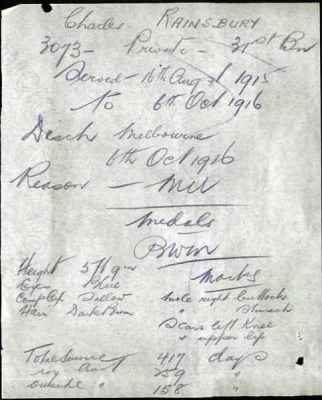 Charles RAINSBURY
3073 - Private - 31st Bn
Served - 16th August 1915
To 6th Oct 1916
Disch Melbourne
6th Oct 1916
Reason - MU
Medals
BWM
Height 5ft 9in Marks
Eyes Blue
Complex Sallow Mole right Buttock
Hair Dark Brown " Stomach
Scars left Knee
+ upper lip
Total Service 417 days
in Aust 259 "
outside " 158 "